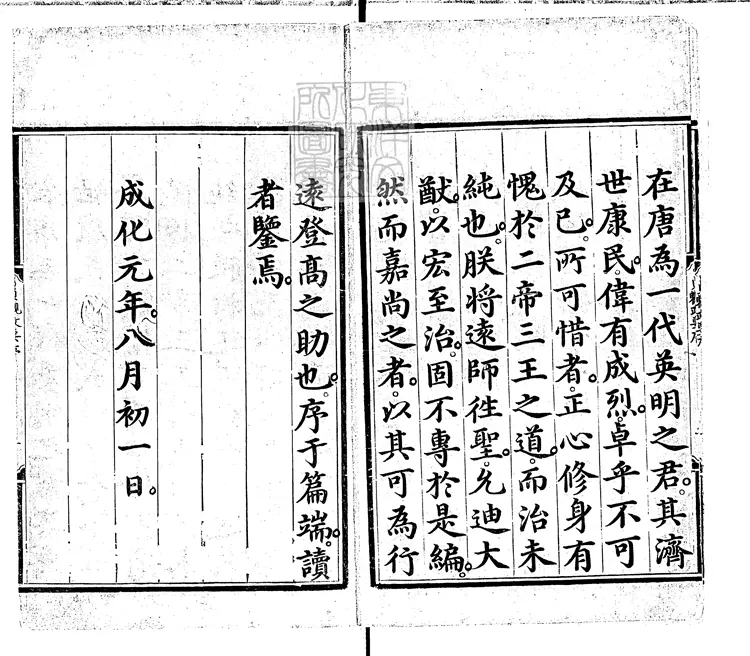 在唐為一代英明之君。其濟
世康民。偉有成烈。卓乎不可
及已。所可惜者。正心修身有
愧於二帝三王之道。而治未
純也。朕將遠師徃聖。允迪大
猷。以宏至治。固不專於是編。
然而嘉尚之者。以其可為行
遠登髙之助也。序于篇端。讀
者鑒焉。
成化元年。八月初一日。